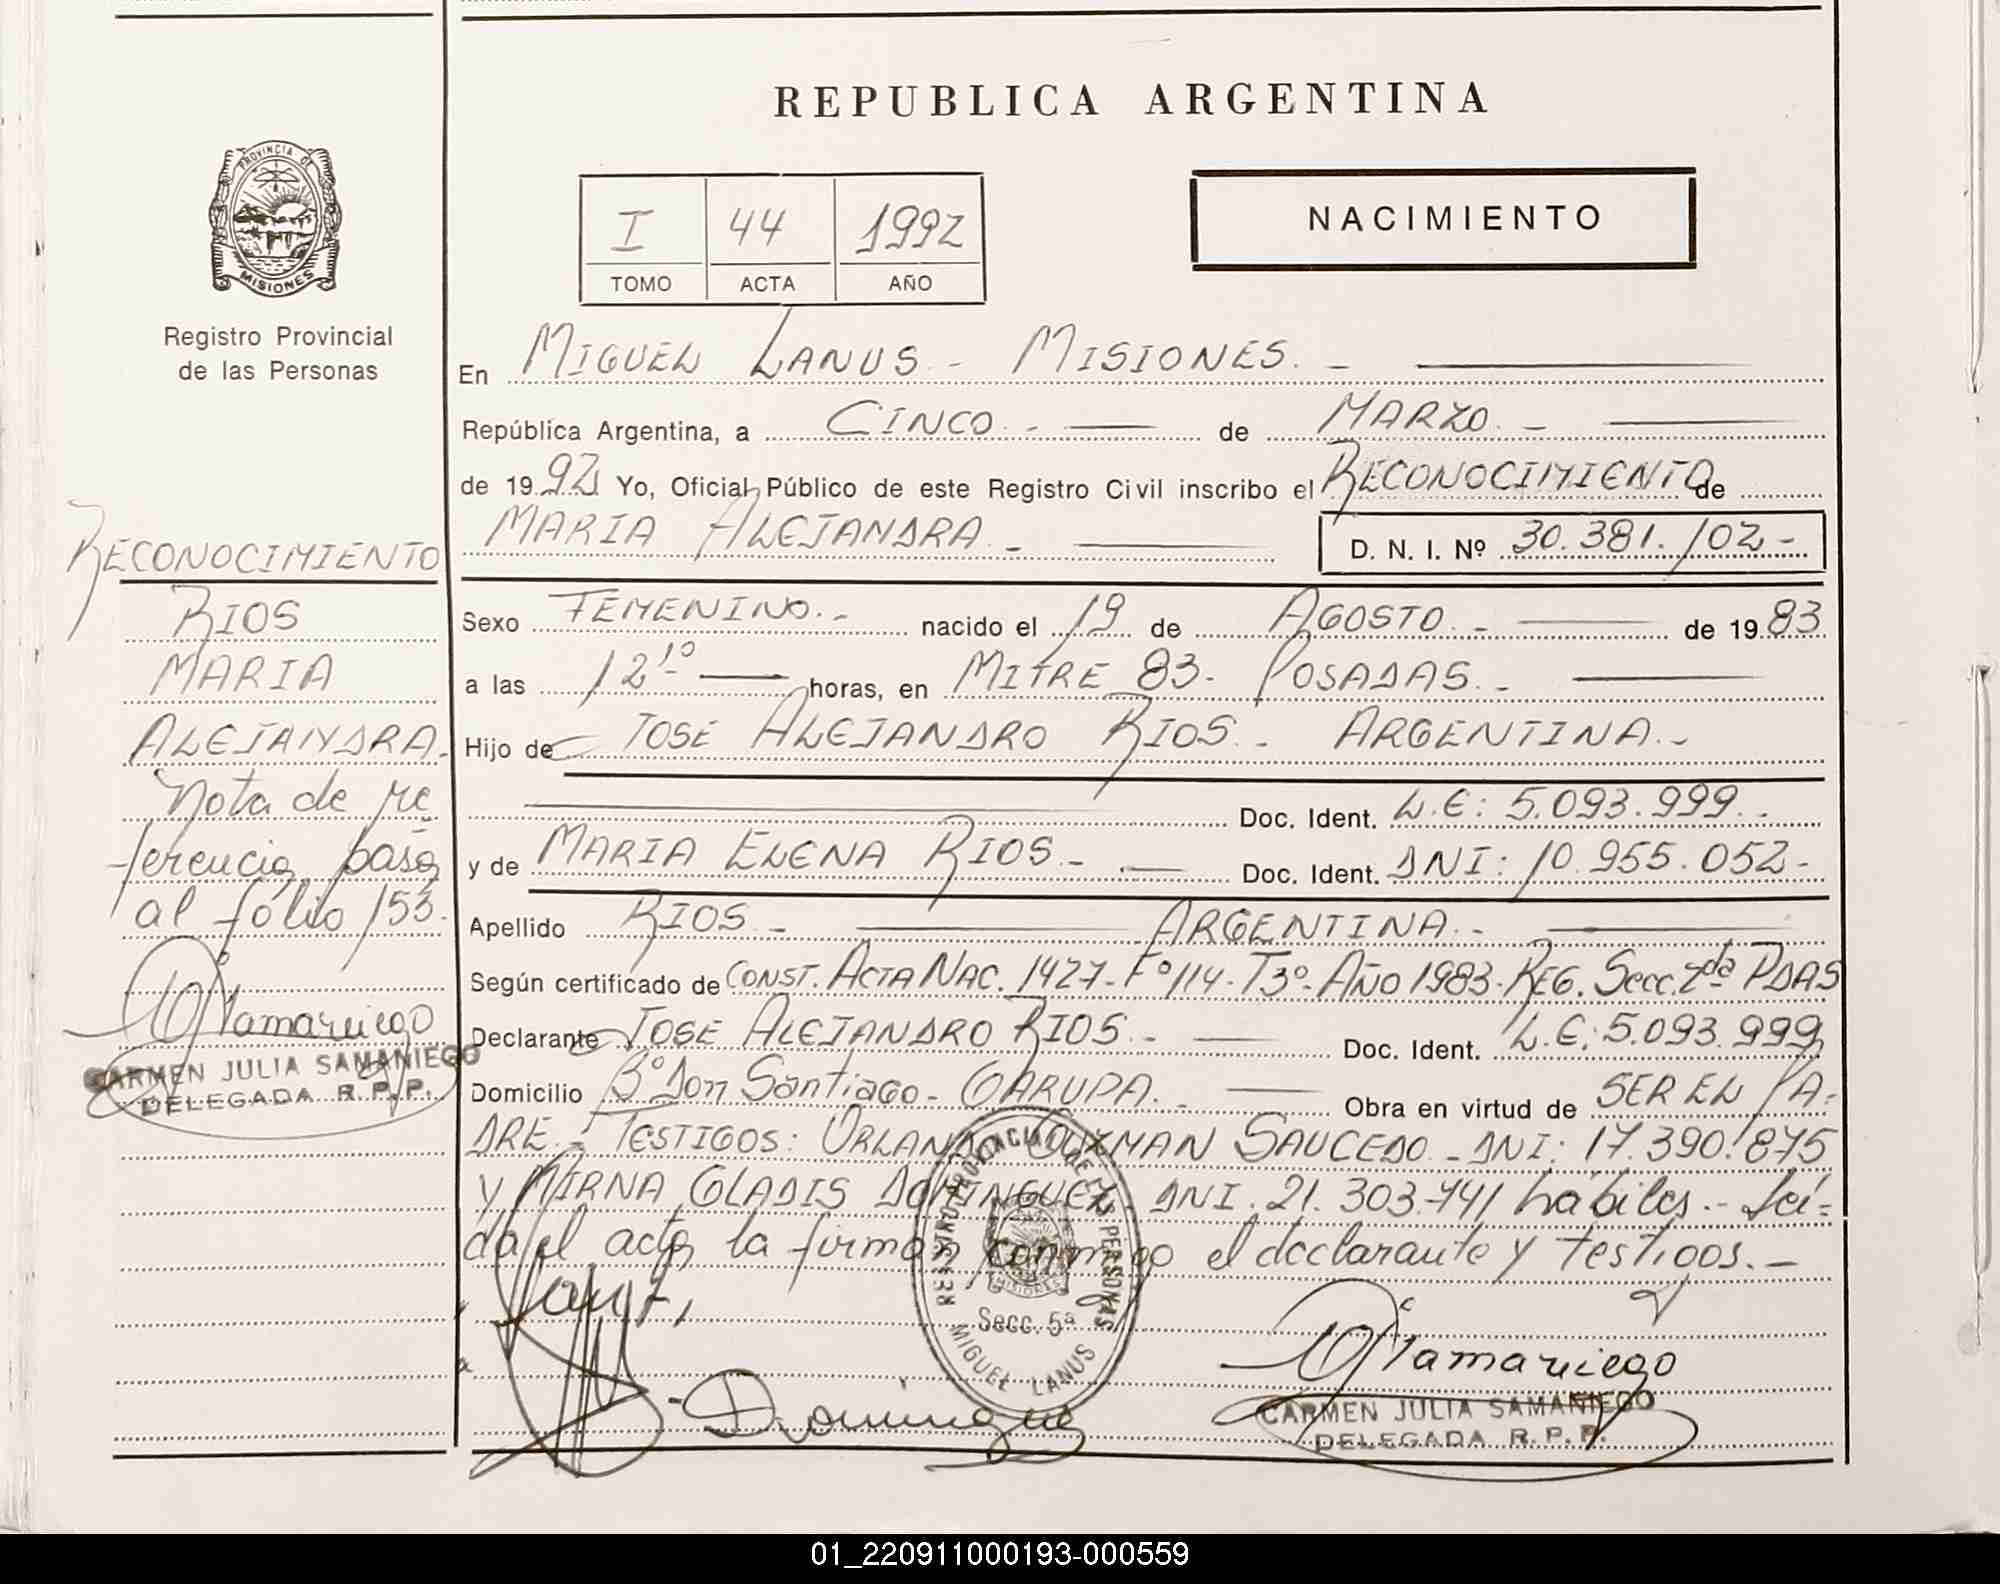 REPUBLICA ARGENTINA
PROVINCIA DE
MISIONES
Registro Provincial
de las Personas
I 44 1992
TOMO ACTA AÑO
NACIMIENTO
En MIGUEL LANUS - MISIONES. -
República Argentina, a CINCO. - de MARZO. -
de 1992 Yo, Oficial Público de este Registro Civil inscribo el RECONOCIMIENTO de
MARIA ALEJANDRA. - D. N. I. Nº 30.381.102-
RECONOCIMIENTO
RIOS
MARIA
ALEJANDRA.
Nota de re
ferencia pasa
al folio 153.
CARMEN JULIA SAMANIEGO
DELEGADA R. P. P.
Sexo FEMENINO. - nacido el 19 de AGOSTO. - de 1983
a las 12 10 horas, en MITRE 83- POSADAS. -
Hijo de JOSE ALEJANDRO RIOS. - ARGENTINA. -
Doc. Ident. L.E: 5.093.999. -
y de MARIA ELENA RIOS. - Doc. Ident. DNI: 10.955.052-
Apellido RIOS - ARGENTINA. -
Según certificado de CONST. ACTA NAC. 1427- Fº 114- T3º- AÑO 1983- REG. Secc. 2da PDAS
Declarante JOSE ALEJANDRO RIOS. - Doc. Ident. L.E: 5.093.999
Domicilio Bº Don Santiago - GARUPA. - Obra en virtud de SER EL PA-
DRE. - TESTIGOS: ORLANDO GUZMAN SAUCEDO - DNI: 17.390.875
y MIRNA GLADIS DOMINGUEZ, DNI. 21.303.741 hábiles. - Leí-
da el acta la firman conmigo el declarante y testigos. -
REGISTRO PROVINCIAL DE LAS PERSONAS
MISIONES
Secc. 5ª
MIGUEL LANUS
CARMEN JULIA SAMANIEGO
DELEGADA R. P. P.
01_220911000193-000559